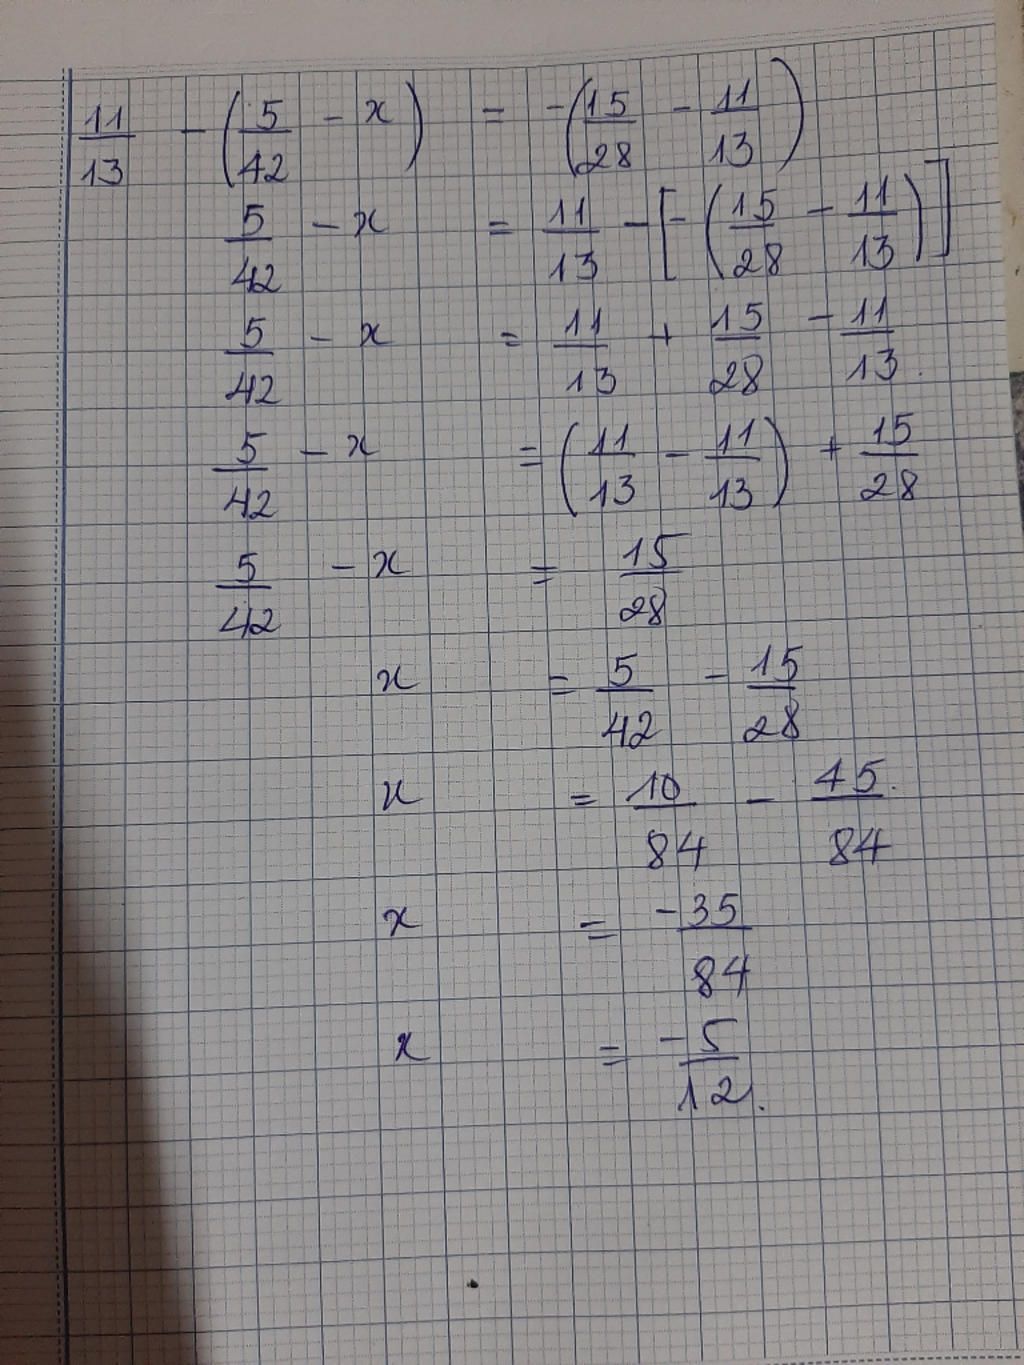 11/13 - (5/42 - x) = -(15/28 - 11/13)
5/42 - x = 11/13 - [-(15/28 - 11/13)]
5/42 - x = 11/13 + 15/28 - 11/13.
5/42 - x = (11/13 - 11/13) + 15/28
5/42 - x = 15/28
x = 5/42 - 15/28
x = 10/84 - 45/84
x = -35/84
x = -5/12.